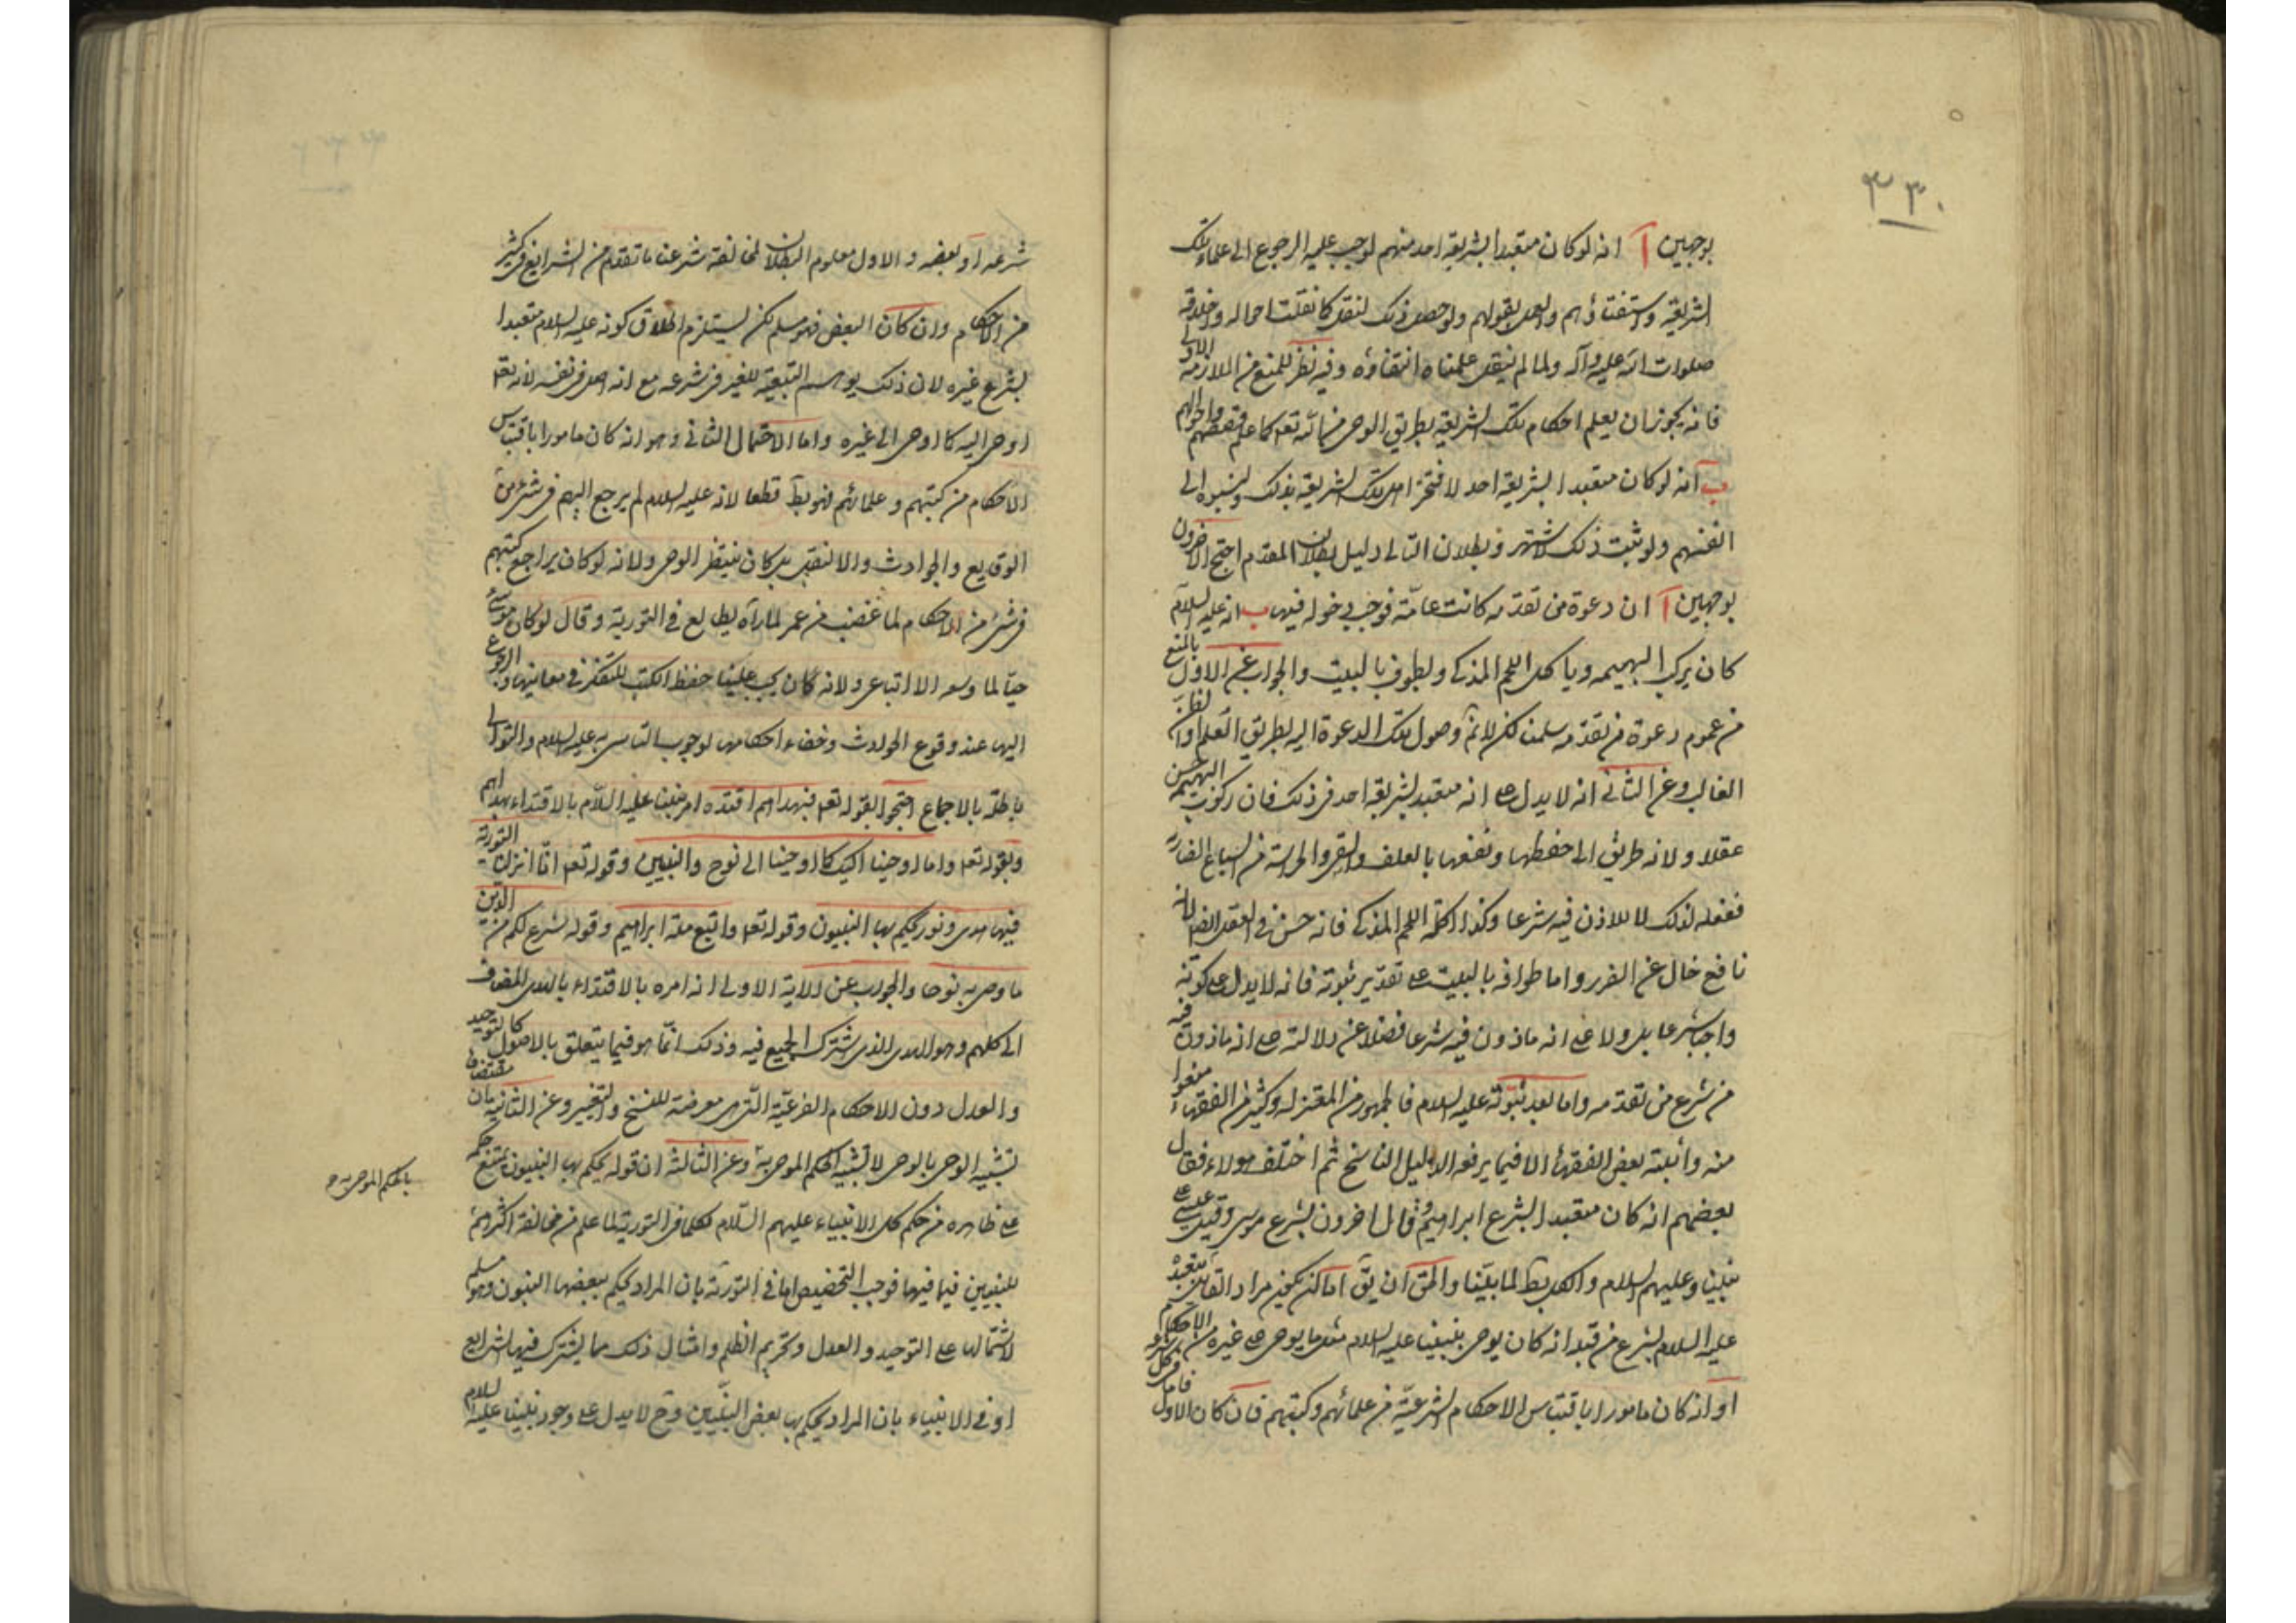 ٣٣٠
بوجهين آ انه لو كان متعبدا بشريعة احد منهم لوجب عليه الرجوع الى علماء تلك
الشريعة واستفتاؤهم والعمل بقولهم ولو حصل ذلك لنقل كما نقلت احواله واخلاقه
صلوات الله عليه وآله ولما لم ينقل علمنا انتفاؤه وفيه نظر للمنع من الملازمة الاولى
فانه يجوز ان يعلم احكام تلك الشريعة بطريق الوحى من الله تعه كما علم قصصهم واحوالهم
ب انه لو كان متعبدا بشريعة احد لافتخر اهل تلك الشريعة بذلك ولنسبوه الى
انفسهم ولو ثبت ذلك لاشتهر وبطلان التالى دليل بطلان المقدم احتج الاخرون
بوجهين آ ان دعوة من تقدمه كانت عامّة فوجب دخوله فيها ب انه عليه السلام
كان يركب البهيمه وياكل اللحم المذكى ويطوف بالبيت والجواب عن الاول بالمنع
من عموم دعوة من تقدمه سلمنا لكن لانم وصول تلك الدعوة اليه بطريق العلم او الظن
الغالب وعن الثانى انه لا يدل على انه متعبد بشريعة احد فى ذلك فان ركوب البهيمة حسن
عقلا ولانه طريق الى حفظها ونفعها بالعلف والسقى والحراسة من السباع الضارة
ففعله لذلك لا للاذن فيه شرعا وكذا اكله اللحم المذكى فانه حسن فى العقل ايضا لانه
نافع خال عن الضرر واما طوافه بالبيت على تقدير ثبوته فانه لا يدل على كونه
واجبا شرعا بل ولا على انه ماذون فيه شرعا فضلا عن دلالته على انه ماذون فيه
من شرع من تقدمه واما بعد نبوته عليه السلام فالجمهور من المعتزله وكثير من الفقهاء منعوا
منه واثبته بعض الفقهاء الا فيما يرفعه الدليل الناسخ ثم اختلف هولاء فقال
بعضهم انه كان متعبدا بشرع ابراهيم وقال اخرون بشرع موسى وقيل عيسى على
نبينا وعليهم السلام والكل بط لما بيّنا والحق ان يق اما ان يكون مراد القائل بتعبده
عليه السلام بشرع من قبله انه كان يوحى بنبينا عليه السلام مثل ما يوحى على غيره من الاحكام
او انه كان مامورا باقتباس الاحكام الشرعيّة من علمائهم وكتبهم فان كان الاول فاما كل
شرعه او بعضه والاول معلوم البطلان لمخالفة شرعنا ما تقدم من الشرايع فى كثير
من الاحكام وان كان البعض فهو مسلم لكن لا يستلزم اطلاق كونه عليه السلام متعبدا
بشرع غيره لان ذلك يوهم التبعية للغير فى شرعه مع انه اصل فى نفسه لانه تعه
اوحى اليه كما اوحى الى غيره واما الاحتمال الثانى وهو انه كان مامورا باقتباس
الاحكام من كتبهم وعلمائهم فهو بط قطعا لانه عليه السلام لم يرجع اليهم فى شىء من
الوقايع والحوادث والا لنقل بل كان ينتظر الوحى ولانه لو كان يراجع كتبهم
فى شىء من الاحكام لما غضب من عمر لما رآه يطالع فى التورية وقال لو كان موسى
حيّا لما وسعه الا اتباعى ولانه كان يجب علينا حفظ الكتب للتفكر فى معانيها والرجوع
اليها عند وقوع الحوادث وخفاء احكامها لوجوب التاسى به عليه السلام والتوالى
باطلة بالاجماع احتجوا بقوله تعه فبهداهم اقتده امر نبينا عليه السّلام بالاقتداء بهداهم
وبقوله تعه واما اوحينا اليك كما اوحينا الى نوح والنبيين وقوله تعه انّا انزلنا التورية
فيها هدى ونور يحكم بها النبيون وقوله تعه واتبع ملة ابراهيم وقوله شرع لكم من الدّين
ما وصى به نوحا والجواب عن الاية الاولى انه امره بالاقتداء بالهدى المضاف
الى كلهم وهو الهدى الذى يشترك الجميع فيه وذلك انّما هو فيما يتعلق بالاصول كالتوحيد
والعدل دون الاحكام الفرعيّة الّتى هى معرضة للنسخ والتغيير وعن الثانية بان مقتضاها
تشبيه الوحى بالوحى لا تشبيه الحكم الموحى به وعن الثالثه ان قوله يحكم بها النبيون يمتنع حكمه
بالحكم الموحى به
على ظاهره من حكم كل الانبياء عليهم السّلام بكلما فى التورية لما علم من مخالفة اكثرهم
للنبيين فيما فيها فوجب التخصيص اما فى التورية بان المراد يحكم ببعضها النبيون وهو مسلم
لاشتمالها على التوحيد والعدل وتحريم الظلم وامثال ذلك مما يشترك فيها الشرايع
او فى الانبياء بان المراد يحكم بها بعض النبّيين وح لا يدل على وجود نبينا عليه السلام